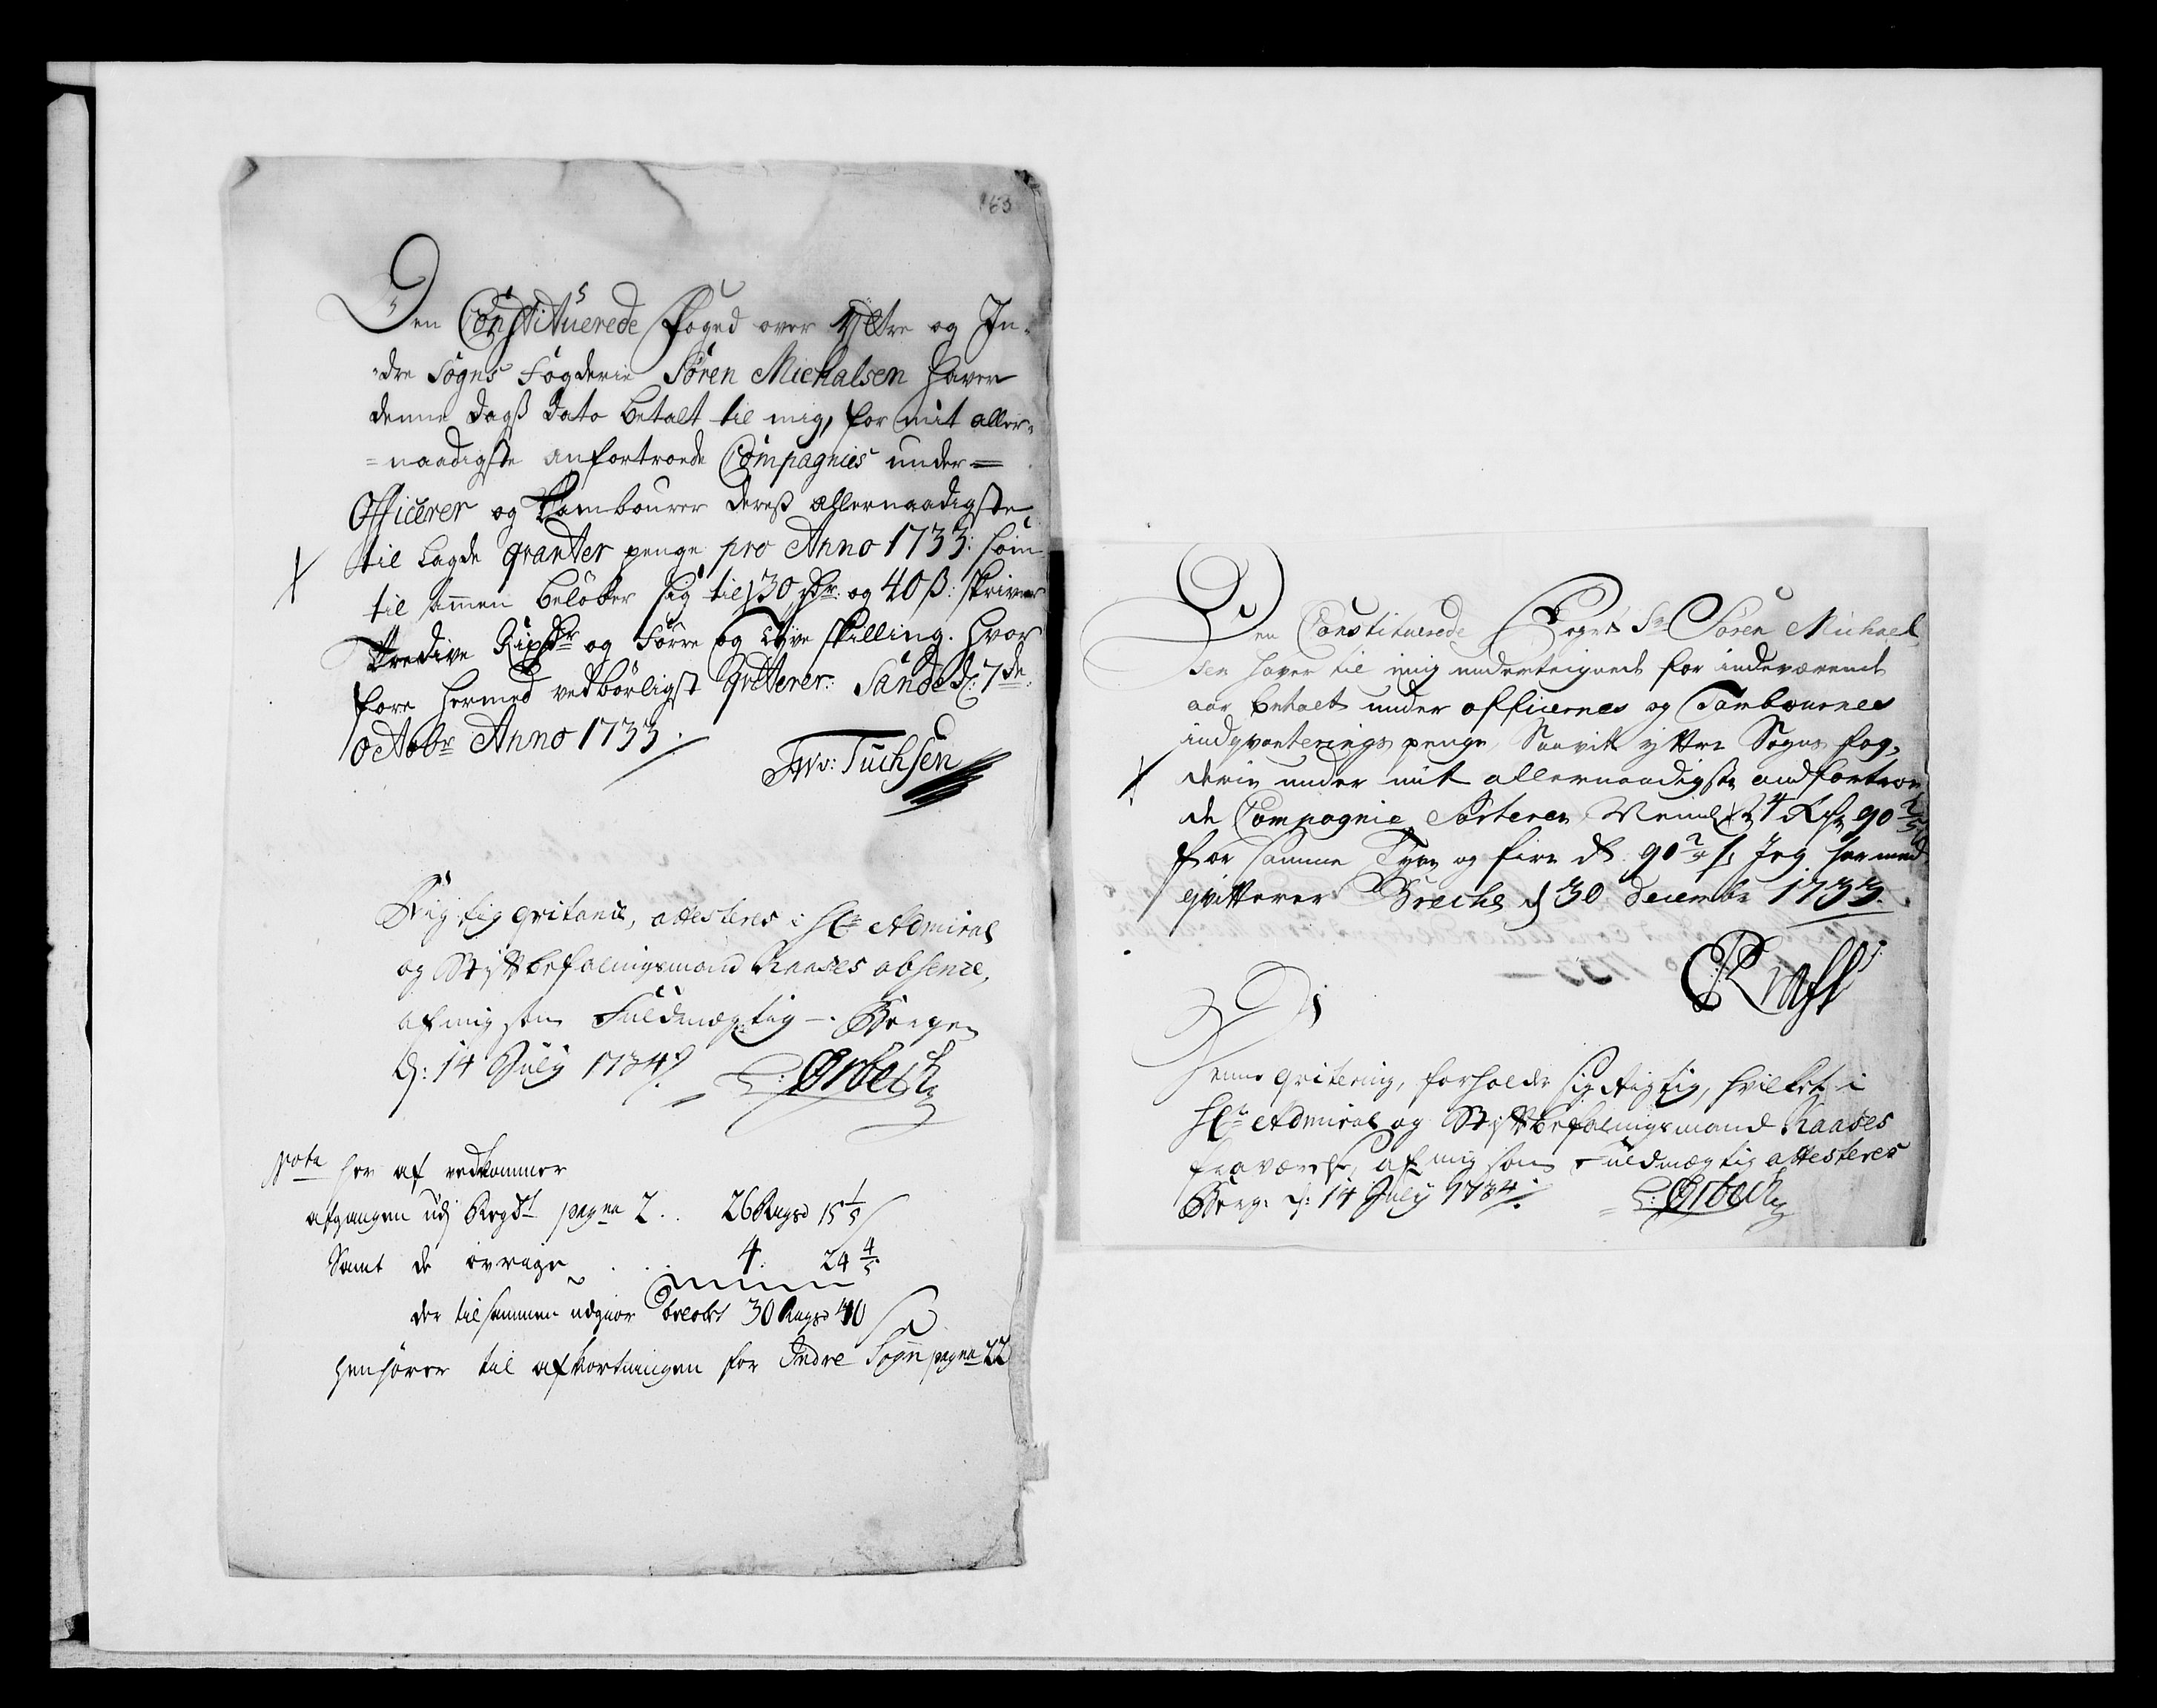 163
Den Constituerede Foged over Yttre og In-
-dre Sogns Fogderie Sören Michalsen haver
denne Dagß Dato betalt til mig, for mit aller-
=naadigste anfortroede Compagnies under=
Officerer og Tambourer dereß allernaadigste
til Lagde qvarter penge pro Anno 1733: som
til sammen belöber sig til 30 rdr: og 40 ß: skriver
Tredive Rixdr og Förre og Tyve skilling. hvor
fore hermed vedbörligst qvitterer: Sande d: 7de
Octobr Anno 1733.
Tuchsen
Rigtig qvitance, attesteres i Hr Admiral
og Stiftbefalingsmand Kaases absence,
af mig som Fuldmægtig — Bergen
d: 14 July 1734
Ørbech
Nota her af vedkommer
afgangen udj Regst pagna 2 .. 26 Rixd 15 1/5
Samt de övrige . . . 4. 24 4/5
der tilsammen udgiör belöb 30 Rixd 40
henhörer til afkortningen for Indre Sogn pagna 22
Den Constituerede Foget Sr Sören Michael
sen haver til mig underteignede for indeværende
aar betalt under officernes og Tambournes
indqvarterings penge, Saavit yttre Sogns fog-
derie under mit allernaadigste andfortroe
de Compagnie Sorterer 24 Rdr 90 2/5
for samme Tyve og fire d 90 2/5 s: Jeg hermed
qvitterer d 30 Decembr 1733.
Krafft
Denne qvitering, forholder sig Rigtig, hvilket i
Hr Admiral og Stiftbefalingsmand Kaases
fraværelse, af mig som Fuldmægtig attesteres
Berg: d: 14 July 1734
Ørbech